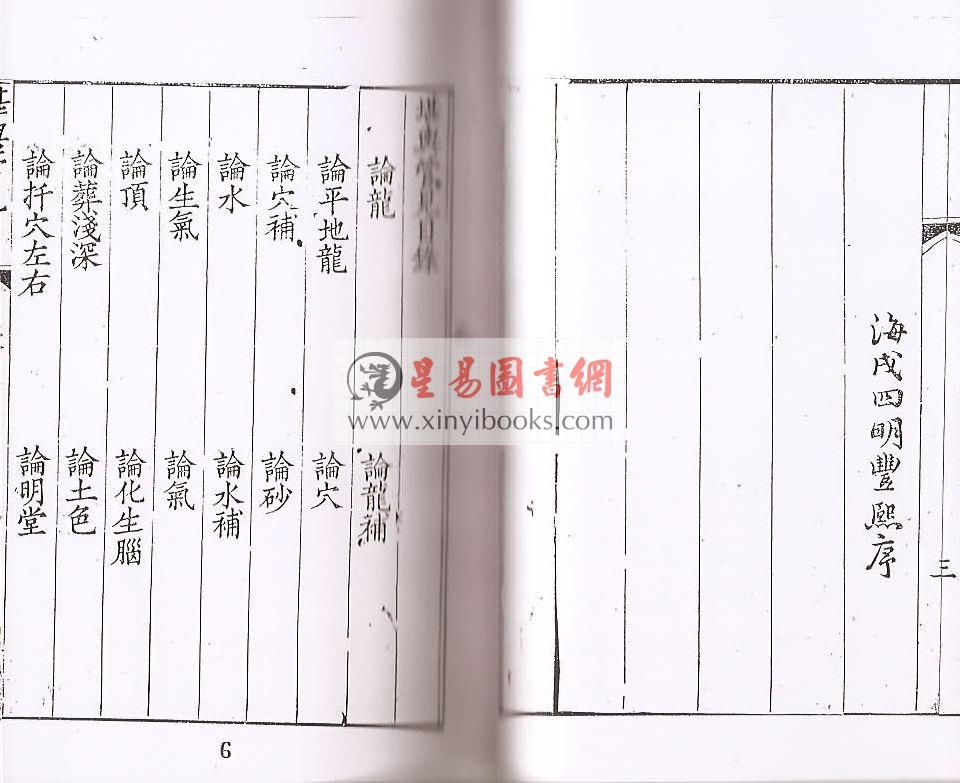 海戍四明豐熙序
三
堪輿管見目錄
論龍
論龍補
論平地龍
論穴
論穴補
論砂
論水
論水補
論生氣
論氣
論頂
論化生腦
論葬淺深
論土色
論扦穴左右
論明堂
6
星易圖書網
www.xinyibooks.com